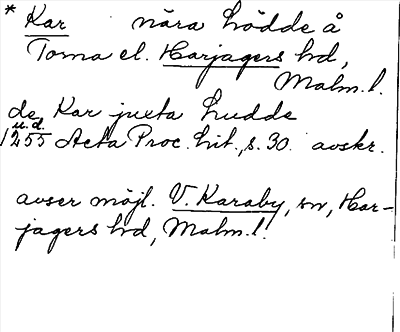 * Kar nära hödde å
Torna el. Harjagers hd,
Malm. l.
de Kar juxta hudde
u. d.
1255 Acta Proc. lit., s. 30. avskr.
avser möjl. V. Karaby, sn, Har-
jagers hd, Malm. l.